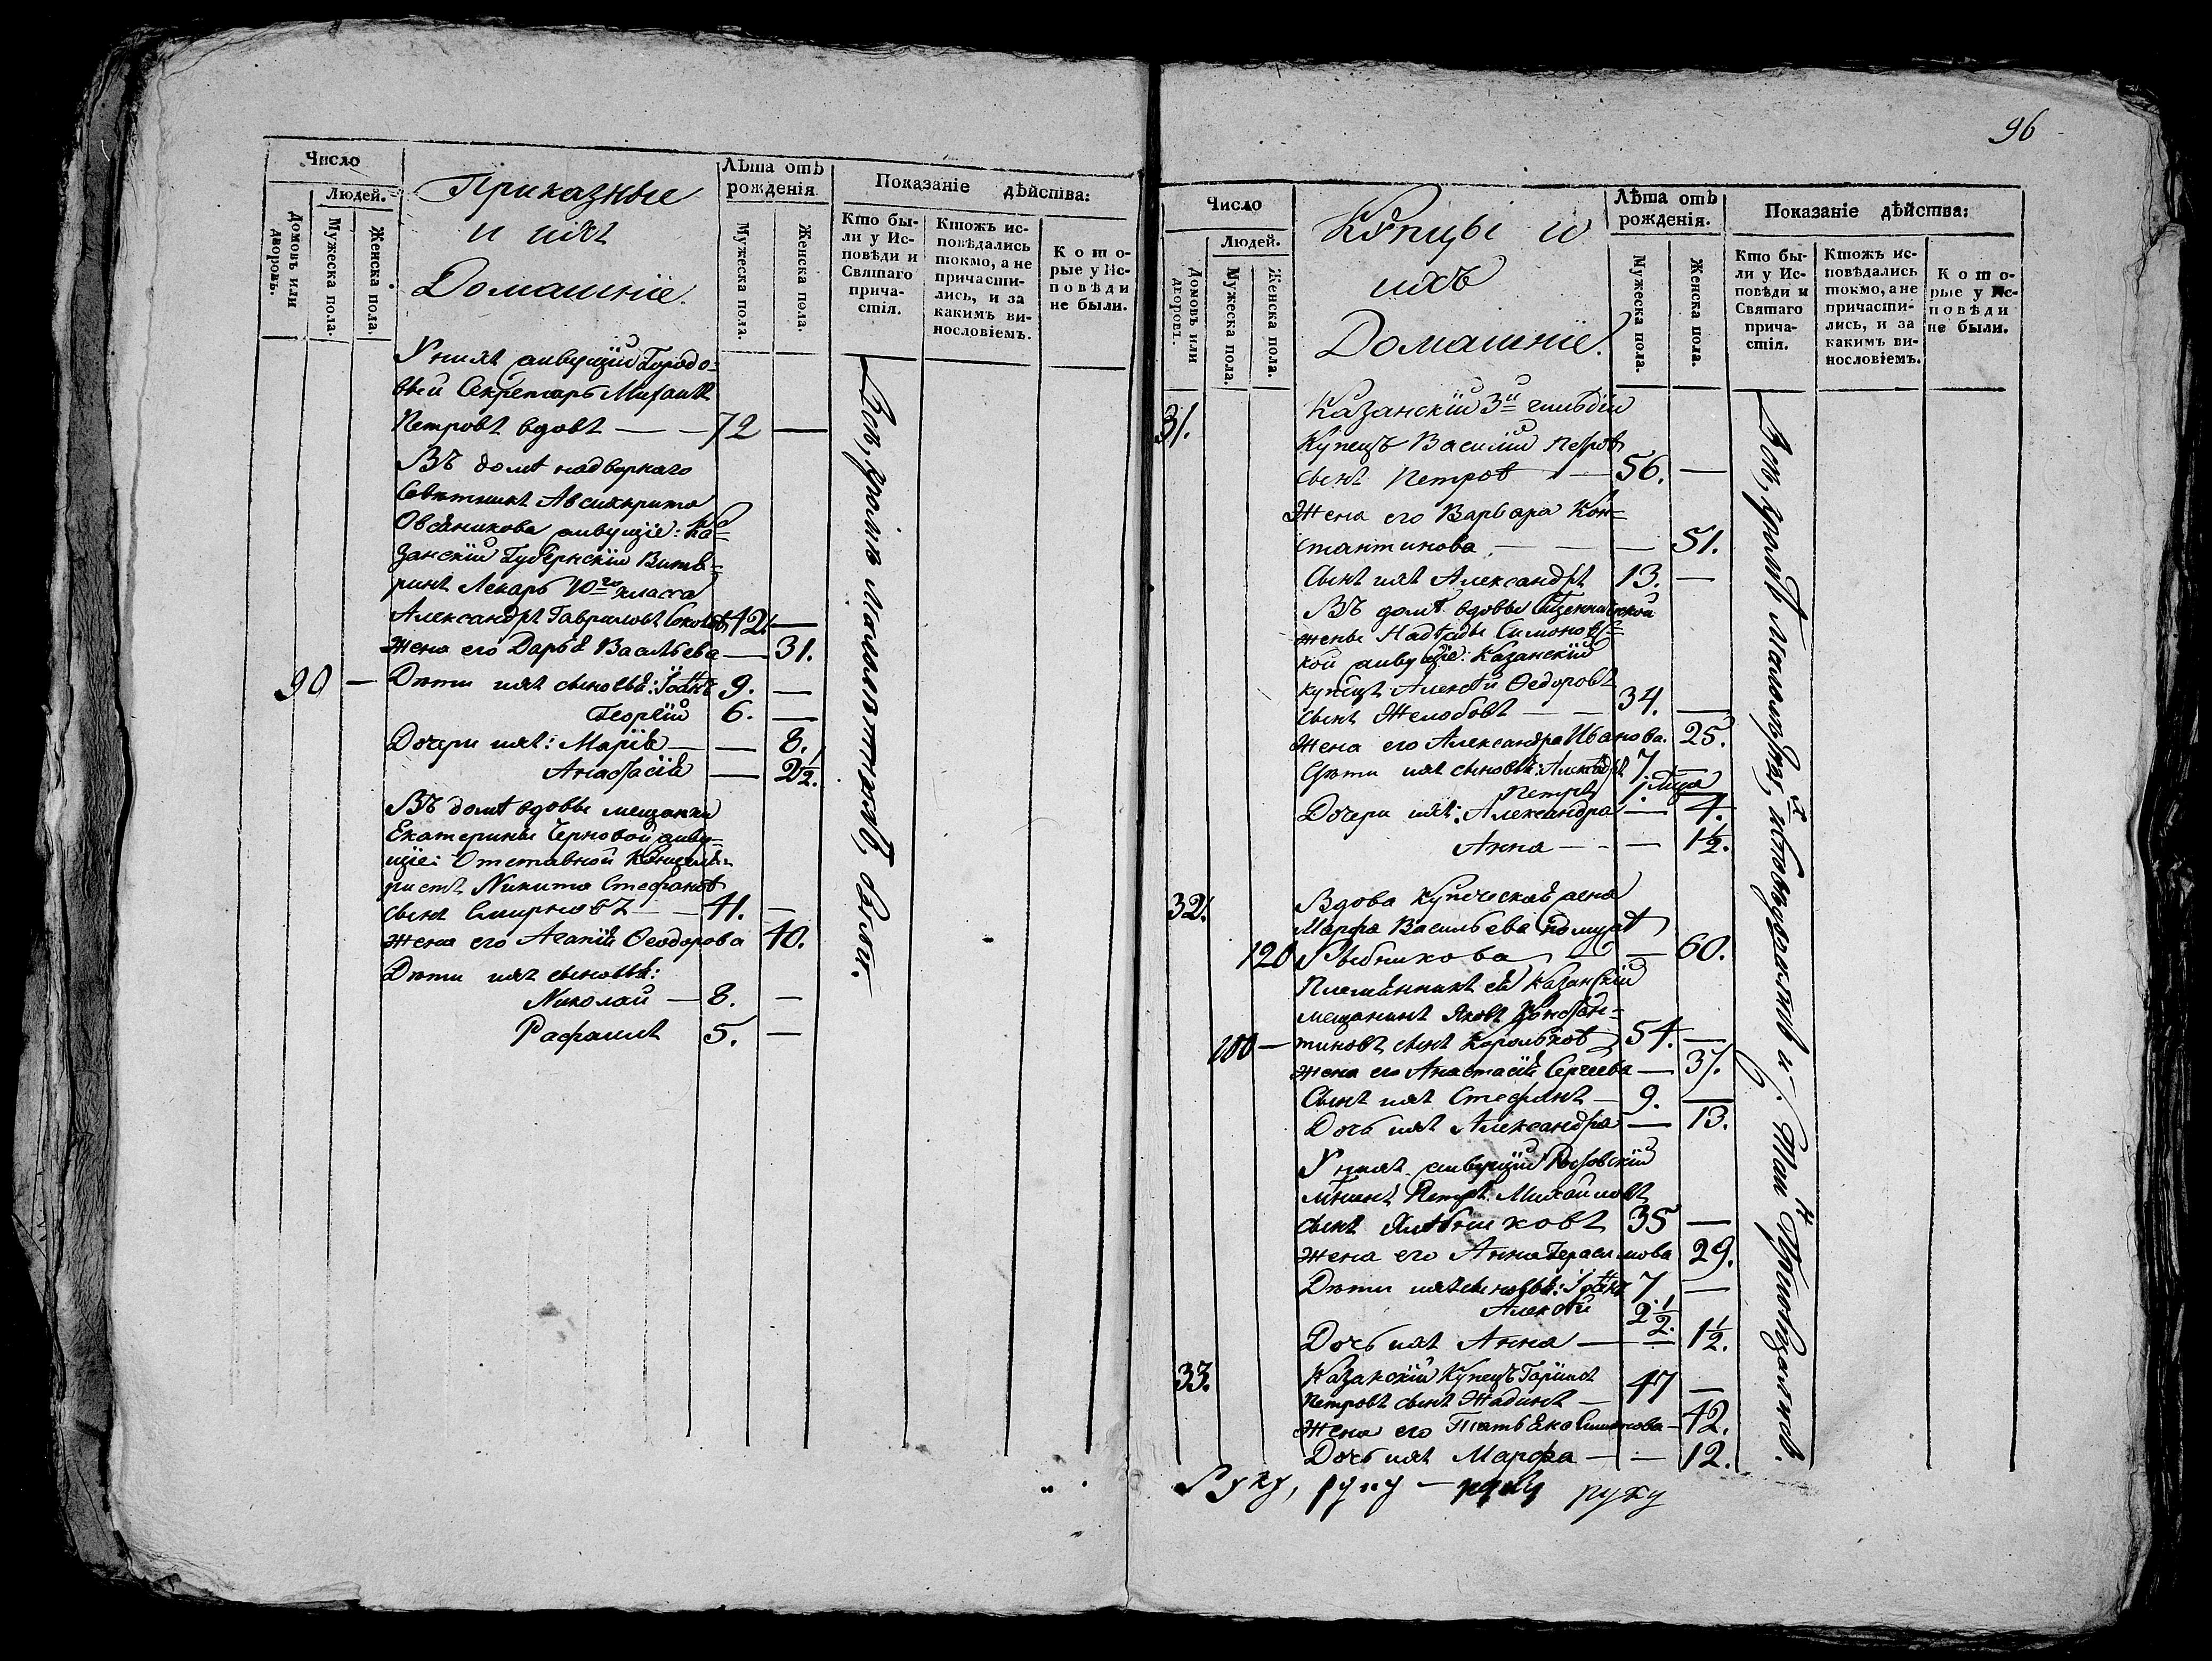 Число
Людей.
Домовъ или дворовъ.
Мужеска пола.
Женска пола.
Приказные
и ихъ
Домашніе.
Лѣта отъ рожденія
Мужеска пола.
Женска пола.
Показаніе дѣйства:
Кто бы-
ли у Ис-
повѣди и
Святаго
прича-
стія.
Ктожъ ис-
повѣдались
токмо, а не
причасти-
лись, и за
какимъ ви-
нословіемъ.
Кото-
рые у Ис-
повѣди
не были.
У нихъ живущій Городо=
вый Секретарь Михаилъ
Петровъ вдовъ — — 72 —
Въ домѣ надворнаго
Совѣтника Авсинкрита
Овсяникова живущіе: Ка=
занскій Губернскій Вите=
ринъ Лекарь 10го класса
Александръ Гавриловъ 42. —
Жена его Дарья Васильева — 31.
90 — Дѣти ихъ сыновья: Іоаннъ 9. —
Георгій 6. —
Дочери ихъ: Марія — — 8.
Анастасія — 2½.
Въ домѣ вдовы мещанки
Екатерины Черновой живу=
щіе: Отставной Канцеля=
ристъ Никита Стефановъ
сынъ Смирновъ — — 41. —
Жена его Агапія Ѳеодорова 40.
Дѣти ихъ сыновья:
Николай — 8. —
Рафаилъ 5. —
Всѣ, кромѣ малолѣтнихъ, были.
96
Число
Людей.
Домовъ или дворовъ.
Мужеска пола.
Женска пола.
Купцы и
ихъ
Домашніе.
Лѣта отъ рожденія.
Мужеска пола.
Женска пола.
Показаніе дѣйства:
Кто бы-
ли у Ис-
повѣди и
Святаго
прича-
стія.
Ктожъ ис-
повѣдались
токмо, а не
причасти-
лись, и за
какимъ ви-
нословіемъ.
Кото-
рые у Ис-
повѣди
не были.
31. Казанскій 3й гильдіи
Купецъ Василій Петровъ
сынъ Петровъ — 56. —
Жена его Варвара Кон=
стантинова — — — 51.
Сынъ ихъ Александръ 13. —
Въ домѣ вдовы Священнической
жены Надежды Симоновс=
кой живущіе: Казанскій
купецъ Алексѣй Ѳедоровъ
сынъ Желобовъ — — 34. —
Жена его Александра Иванова. 25.
Дѣти ихъ сыновья: Александръ 7. —
Петръ 1.
Дочери ихъ: Александра — 4.
Анна — — — 1½.
32. Вдова Купеческая жена
Марфа Васильева по мужѣ
120 Рыбникова — 60.
Племянникъ ея Казанскій
мещанинъ Яковъ Констан=
100 — тиновъ сынъ Корольковъ 54. —
Жена его Анастасія Сергеева — 37.
Сынъ ихъ Стефанъ — 9. —
Дочь ихъ Александра — 13.
У нихъ живущій Ростовскій
Петръ Михайловъ
сынъ 35 —
Жена его Анна Герасимова 29.
Дѣти ихъ сыновья: Іоаннъ 7 —
Алексѣй 2½.
Дочь ихъ Анна — — 1½.
33. Казанскій Купецъ Гаріилъ
Петровъ сынъ Жадинъ — 47 —
Жена его Татьяна Симонова — 42.
Дочь ихъ Марфа — — 12.
Руку, руку — руку руку